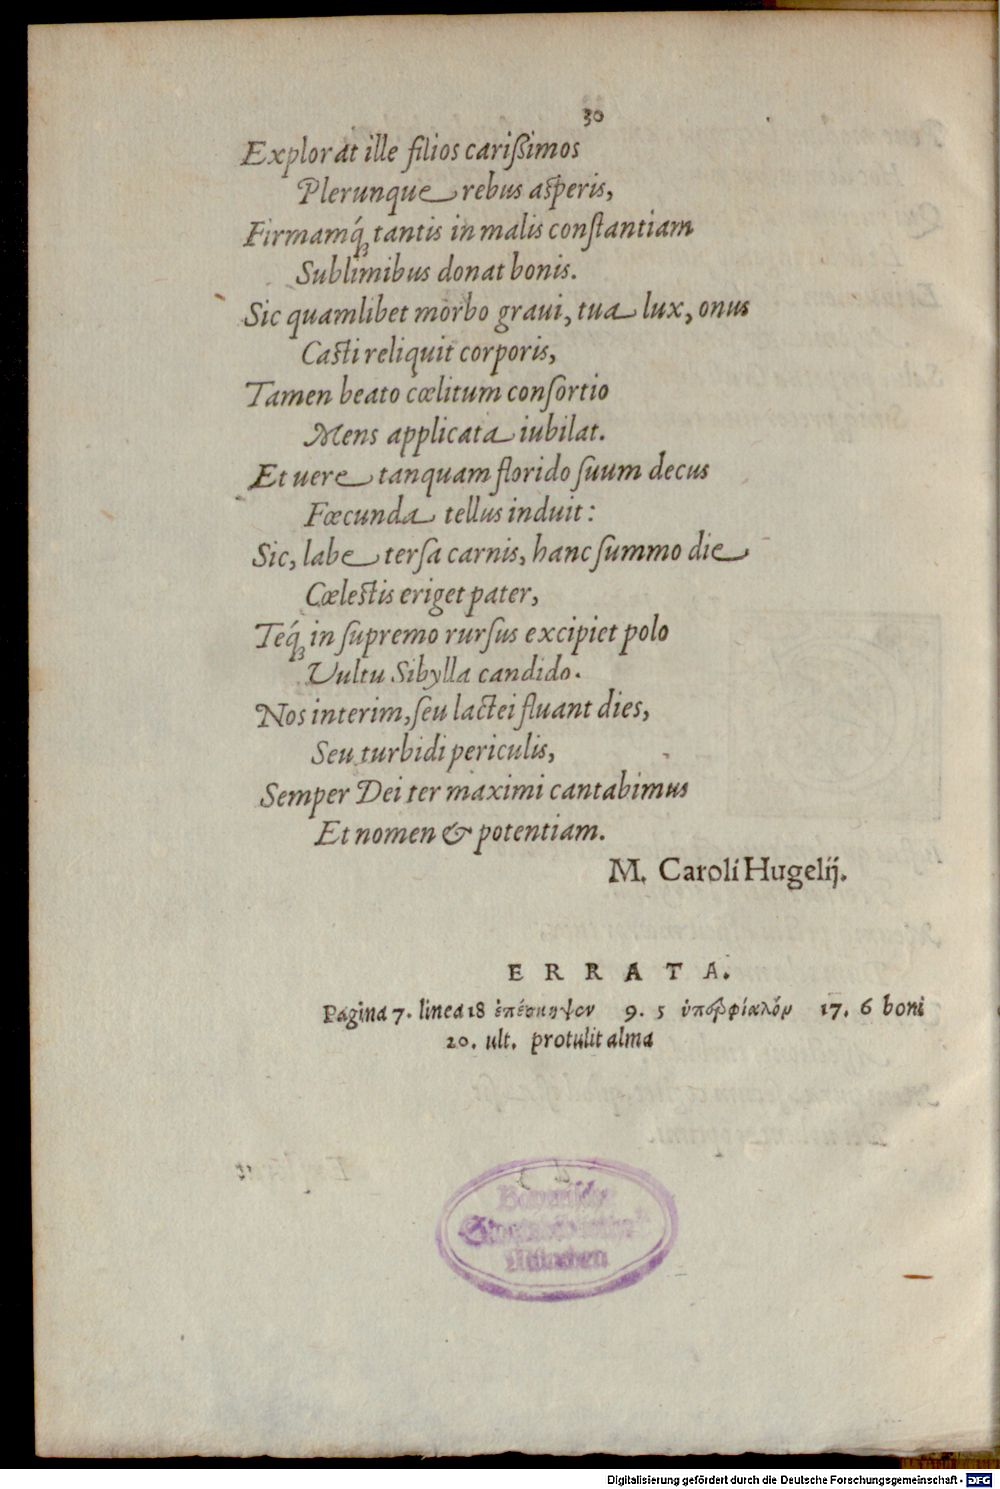 30
Explorat ille filios carißimos
Plerunque rebus asperis,
Firmamq́; tantis in malis constantiam
Sublimibus donat bonis.
Sic quamlibet morbo graui, tua lux, onus
Casti reliquit corporis,
Tamen beato cœlitum consortio
Mens applicata iubilat.
Et uere tanquam florido suum decus
Fœcunda tellus induit:
Sic, labe tersa carnis, hanc summo die
Cœlestis eriget pater,
Teq́; in supremo rursus excipiet polo
Vultu Sibylla candido.
Nos interim, seu lactei fluant dies,
Seu turbidi periculis,
Semper Dei ter maximi cantabimus
Et nomen & potentiam.
M. Caroli Hugelij.
ERRATA.
Pagina 7. linea 18 ἐπέσκηψον 9. 5 17. 6 boni
20. ult. protulit alma
Bayerische
Staatsbibliothek
München
Digitalisierung gefördert durch die Deutsche Forschungsgemeinschaft - DFG